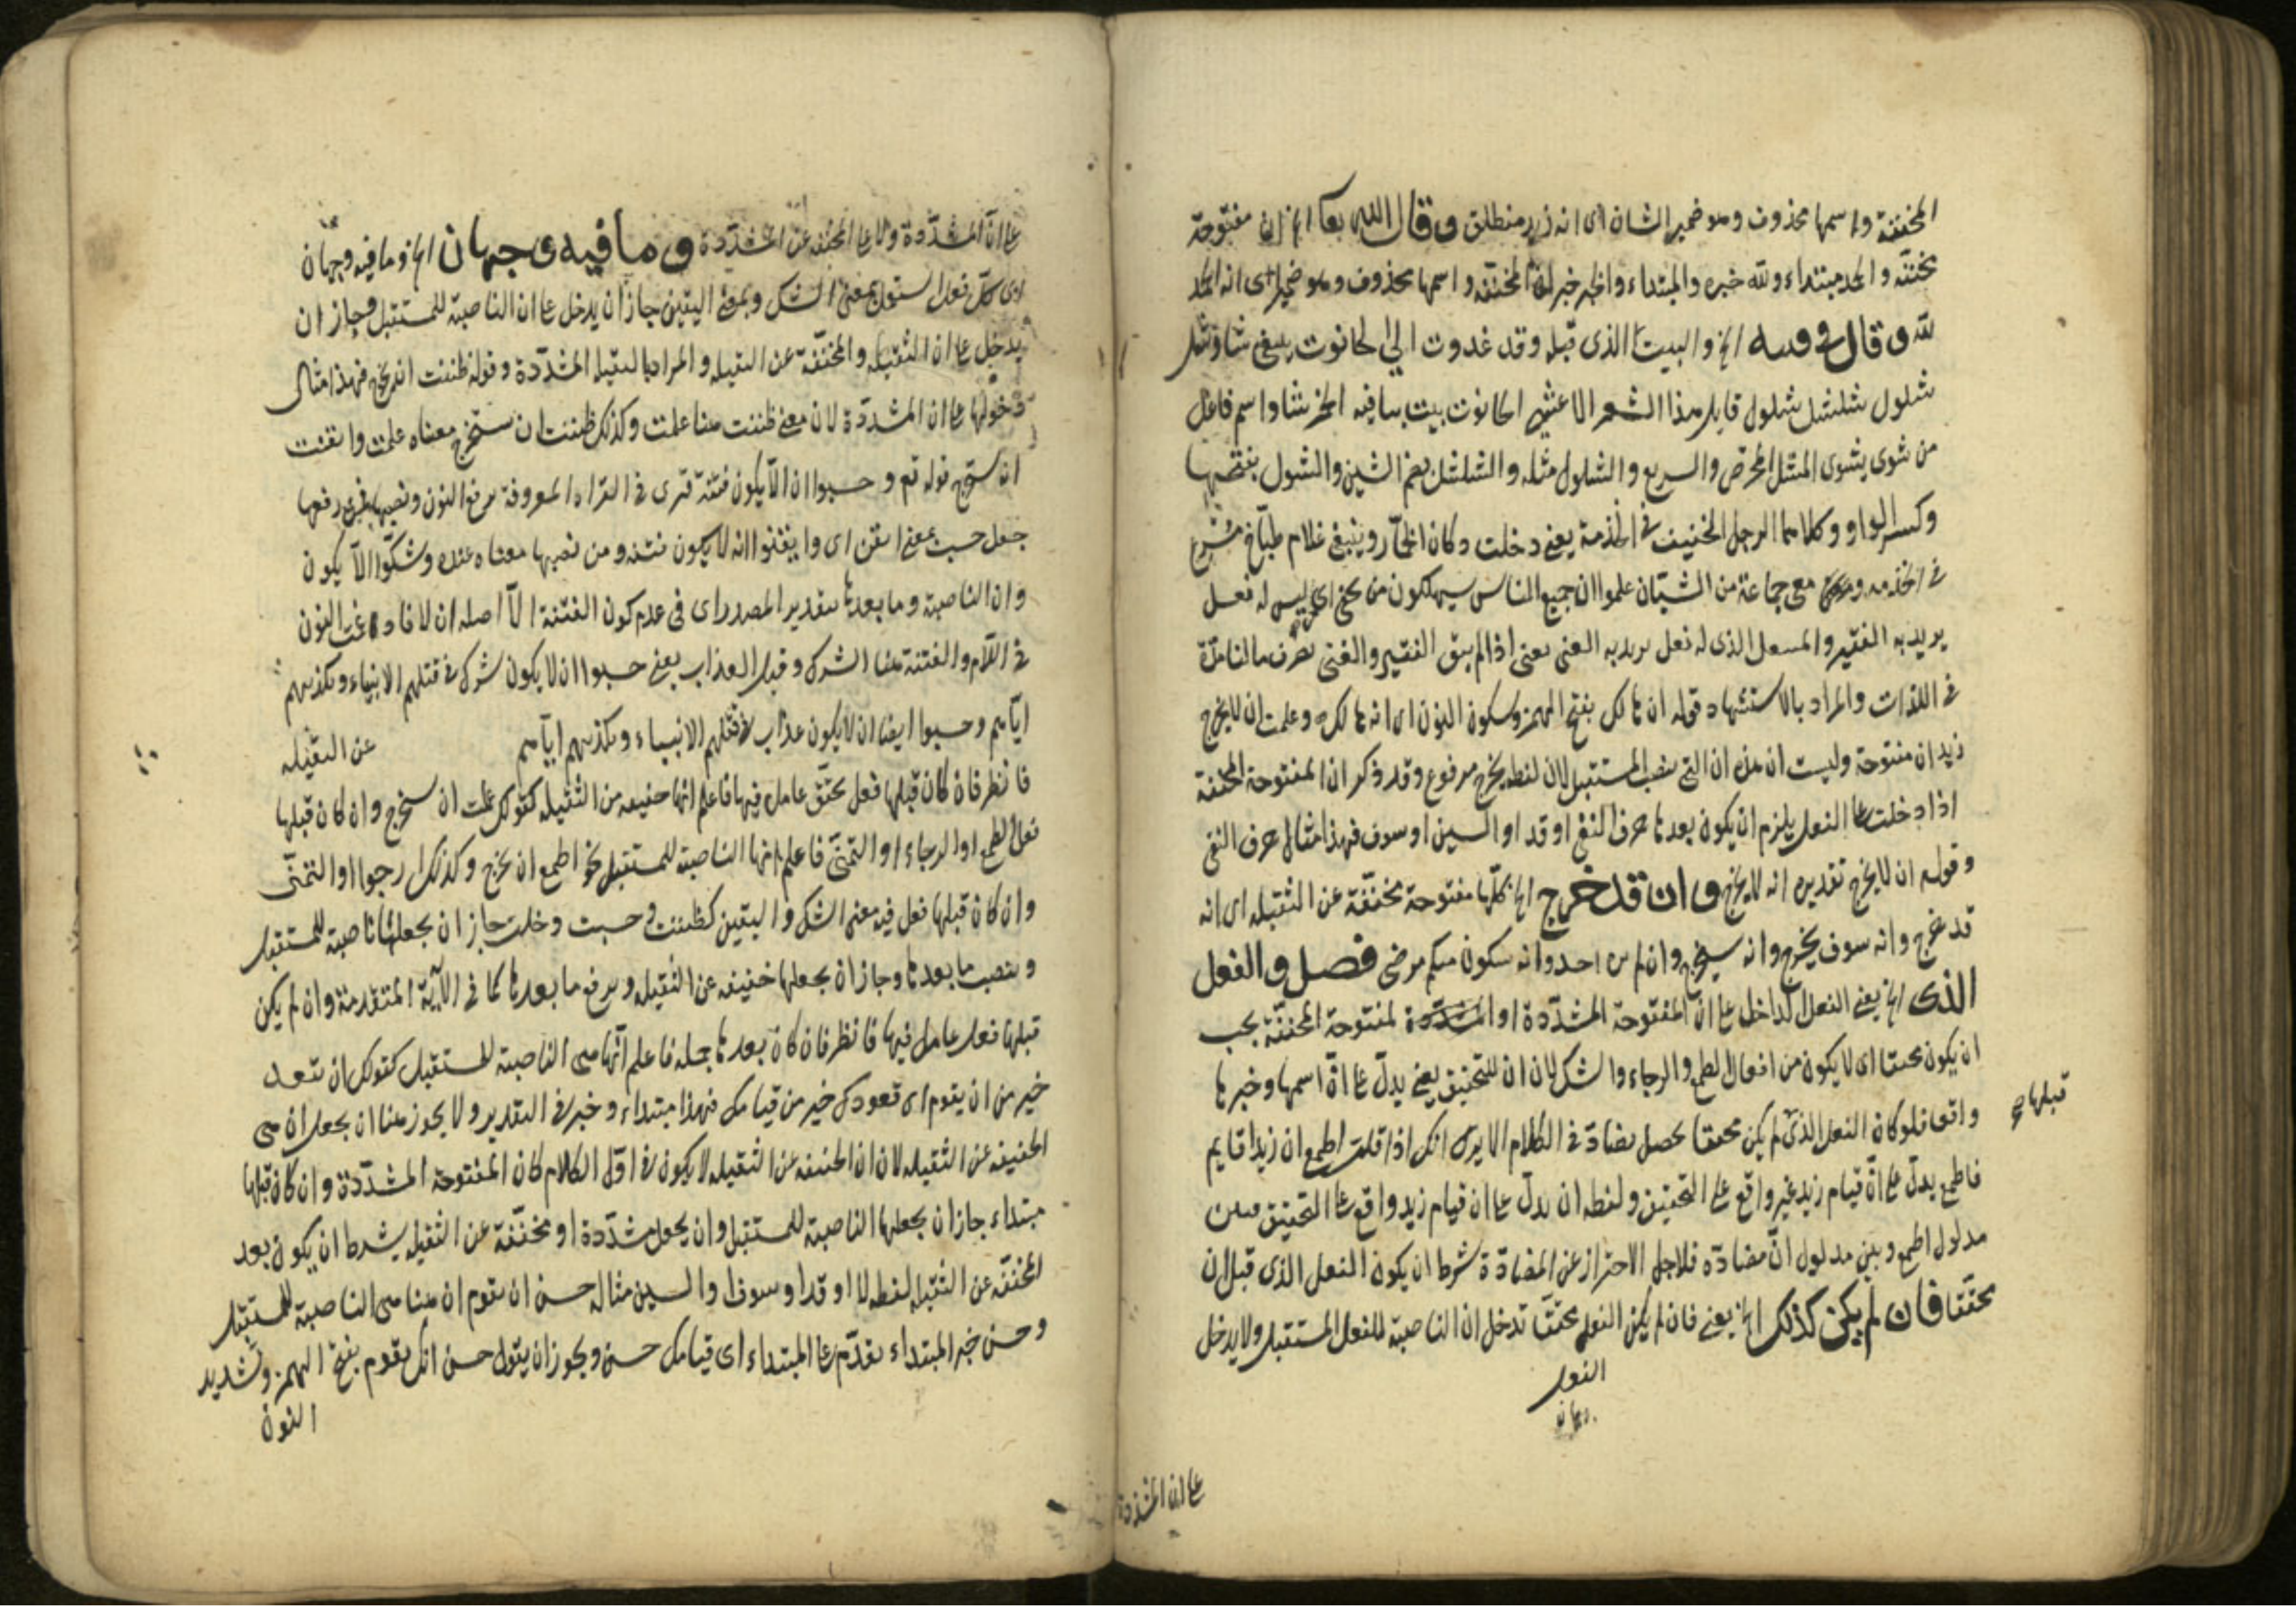 المخففة واسمها محذوف وهو ضمير الشان اى انه زيد منطلق وقال الله تعا الخ ان مفتوحة
مخففة والحمد مبتداء ولله خبره والمبتداء والخبر خبر ان المخففة واسمها محذوف وهو ضمير اى انه الحمد
لله وقال فى الخ والبيت الذى قبله وقد غدوت الى الحانوت يتبعنى شاو مشل
شلول شلشل شول قايل هذا الشعر الاعشى الحانوت بيت يباع فيه الخمر شاو اسم فاعل
من شوى يشوى المشل المحرض والسريع والشلول مثله والشلشل بضم الشين والشول بفتحها
وكسر الواو وكلاهما الرجل الخفيف فى الخدمة يعنى دخلت دكان الخمار ويتبعنى غلام طباخ مسرع
فى الخدمة مع جماعة من الشبان علموا ان جميع الناس سيهلكون من يحفى اى ليس له فعل
يريد به الفقير والمنتعل الذى له نعل يريد به الغنى يعنى اذا لم يبق الفقير والغنى نصرف مالنا مدة
فى اللذات والمراد بالاستشهاد قوله ان هالك بفتح الهمز وسكون النون اى انه هالك وعلمت ان لا يخرج
زيد ان مفتوحة وليست ان هذه ان التى تنصب المستقبل لان لفظ يخرج مرفوع وقد ذكر ان المفتوحة المخففة
اذا دخلت على الفعل يلزم ان يكون بعدها حرف النفى او قد او السين او سوف فهذا مثال حرف النفى
وقوله ان لا يخرج تقديره انه لا يخرج وان قد خرج الخ كلها مفتوحة مخففة عن الثقيلة اى انه
قد خرج وانه سوف يخرج وانه سيخرج وان لم يره احد وانه سيكون منكم مرضى فصل والفعل
الذى الخ يعنى الفعل الداخل على ان المفتوحة المشددة او المفتوحة المخففة يجب
ان يكون محققا اى لا يكون من افعال الطمع والرجاء والشك لان ان للتحقيق يعنى يدل على ان اسمها وخبرها
قبلها صح
واقع فلو كان الفعل الذى لم يكن محققا يحصل تضاد فى الكلام الا يرى انك اذا قلت اطمع ان زيدا قايم
فاطمع يدل على ان قيام زيد غير واقع على التحقيق ولفظه ان يدل على ان قيام زيد واقع على التحقيق فبين
مدلول اطمع وبين مدلول ان مضادة فلاجل الاحتراز عن المضادة شرط ان يكون الفعل الذى قبل ان
محققا فان لم يكن كذلك الخ يعنى فان لم يكن الفعل محققا تدخل ان الناصبة للفعل المستقبل ولا يدخل
الفعل
على ان المشددة
على ان المشددة ولا على المخففة عن المشددة وما فيه وجهان الخ وما فيه وجهان
اى كل فعل استعمل بمعنى الشك وبمعنى اليقين جاز ان يدخل على ان الناصبة للمستقبل وجاز ان
يدخل على ان الثقيلة والمخففة عن الثقيلة والمراد بالثقيلة المشددة وقوله ظننت انك تخرج فهذا مثال
دخولها على ان المشددة لان معنى ظننت هنا علمت وكذلك ظننت ان ستخرج معناه علمت وايقنت
ان ستخرج قوله تع وحسبوا ان لا يكون فتنة قرى فى القراءة المعروفة برفع النون ونصبها فمن رفعها
جعل حسب بمعنى ايقن اى وايقنوا انه لا يكون فتنة ومن نصبها معناه عنده وشكوا الا يكون
وان الناصبة وما بعدها بتقدير المصدر اى فى عدم كون الفتنة الا اصله ان لا فادغمت النون
فى اللام والفتنة هنا الشرك وقيل العذاب يعنى حسبوا ان لا يكون شرك فى قتلهم الانبياء وتكذيبهم
اياهم وحسبوا ايضا ان لا يكون عذاب فى قتلهم الانبياء وتكذيبهم اياهم عن الثقيلة
فانظر فان كان قبلها فعل محقق عامل فيها فاعلم انها خفيفة من الثقيلة كقولك علمت ان ستخرج وان كان قبلها
فعل الطمع او الرجاء او التمنى فاعلم انها الناصبة للمستقبل نحو اطمع ان تخرج وكذلك ارجو او التمنى
وان كان قبلها فعل فيه معنى الشك واليقين كظننت وحسبت وخلت جاز ان يجعلها ناصبة للمستقبل
وينصب ما بعدها وجاز ان يجعلها خفيفة عن الثقيلة ويرفع ما بعدها كما فى الآية المتقدمة وان لم يكن
قبلها فعل عامل فيها فانظر فان كان بعدها جملة فاعلم انها هى الناصبة للمستقبل كقولك ان تقعد
خير من ان يقوم اى قعودك خير من قيامك فهذا مبتداء وخبر فى التقدير ولا يجوز هنا ان يجعل ان هى
الخفيفة عن الثقيلة لان ان الخفيفة عن الثقيلة لا يكون فى اول الكلام كان المفتوحة المشددة وان كان قبلها
مبتداء جاز ان يجعلها الناصبة للمستقبل وان يجعل مشددة او مخففة عن الثقيلة بشرط ان يكون بعد
المخففة عن الثقيلة لفظه لا او قد او سوف او السين مثاله حسن ان تقوم ان هنا هى الناصبة للمستقبل
وحسن خبر المبتداء تقدم على المبتداء اى قيامك حسن ويجوز ان يقول حسن انك تقوم بفتح الهمز وتشديد
النون